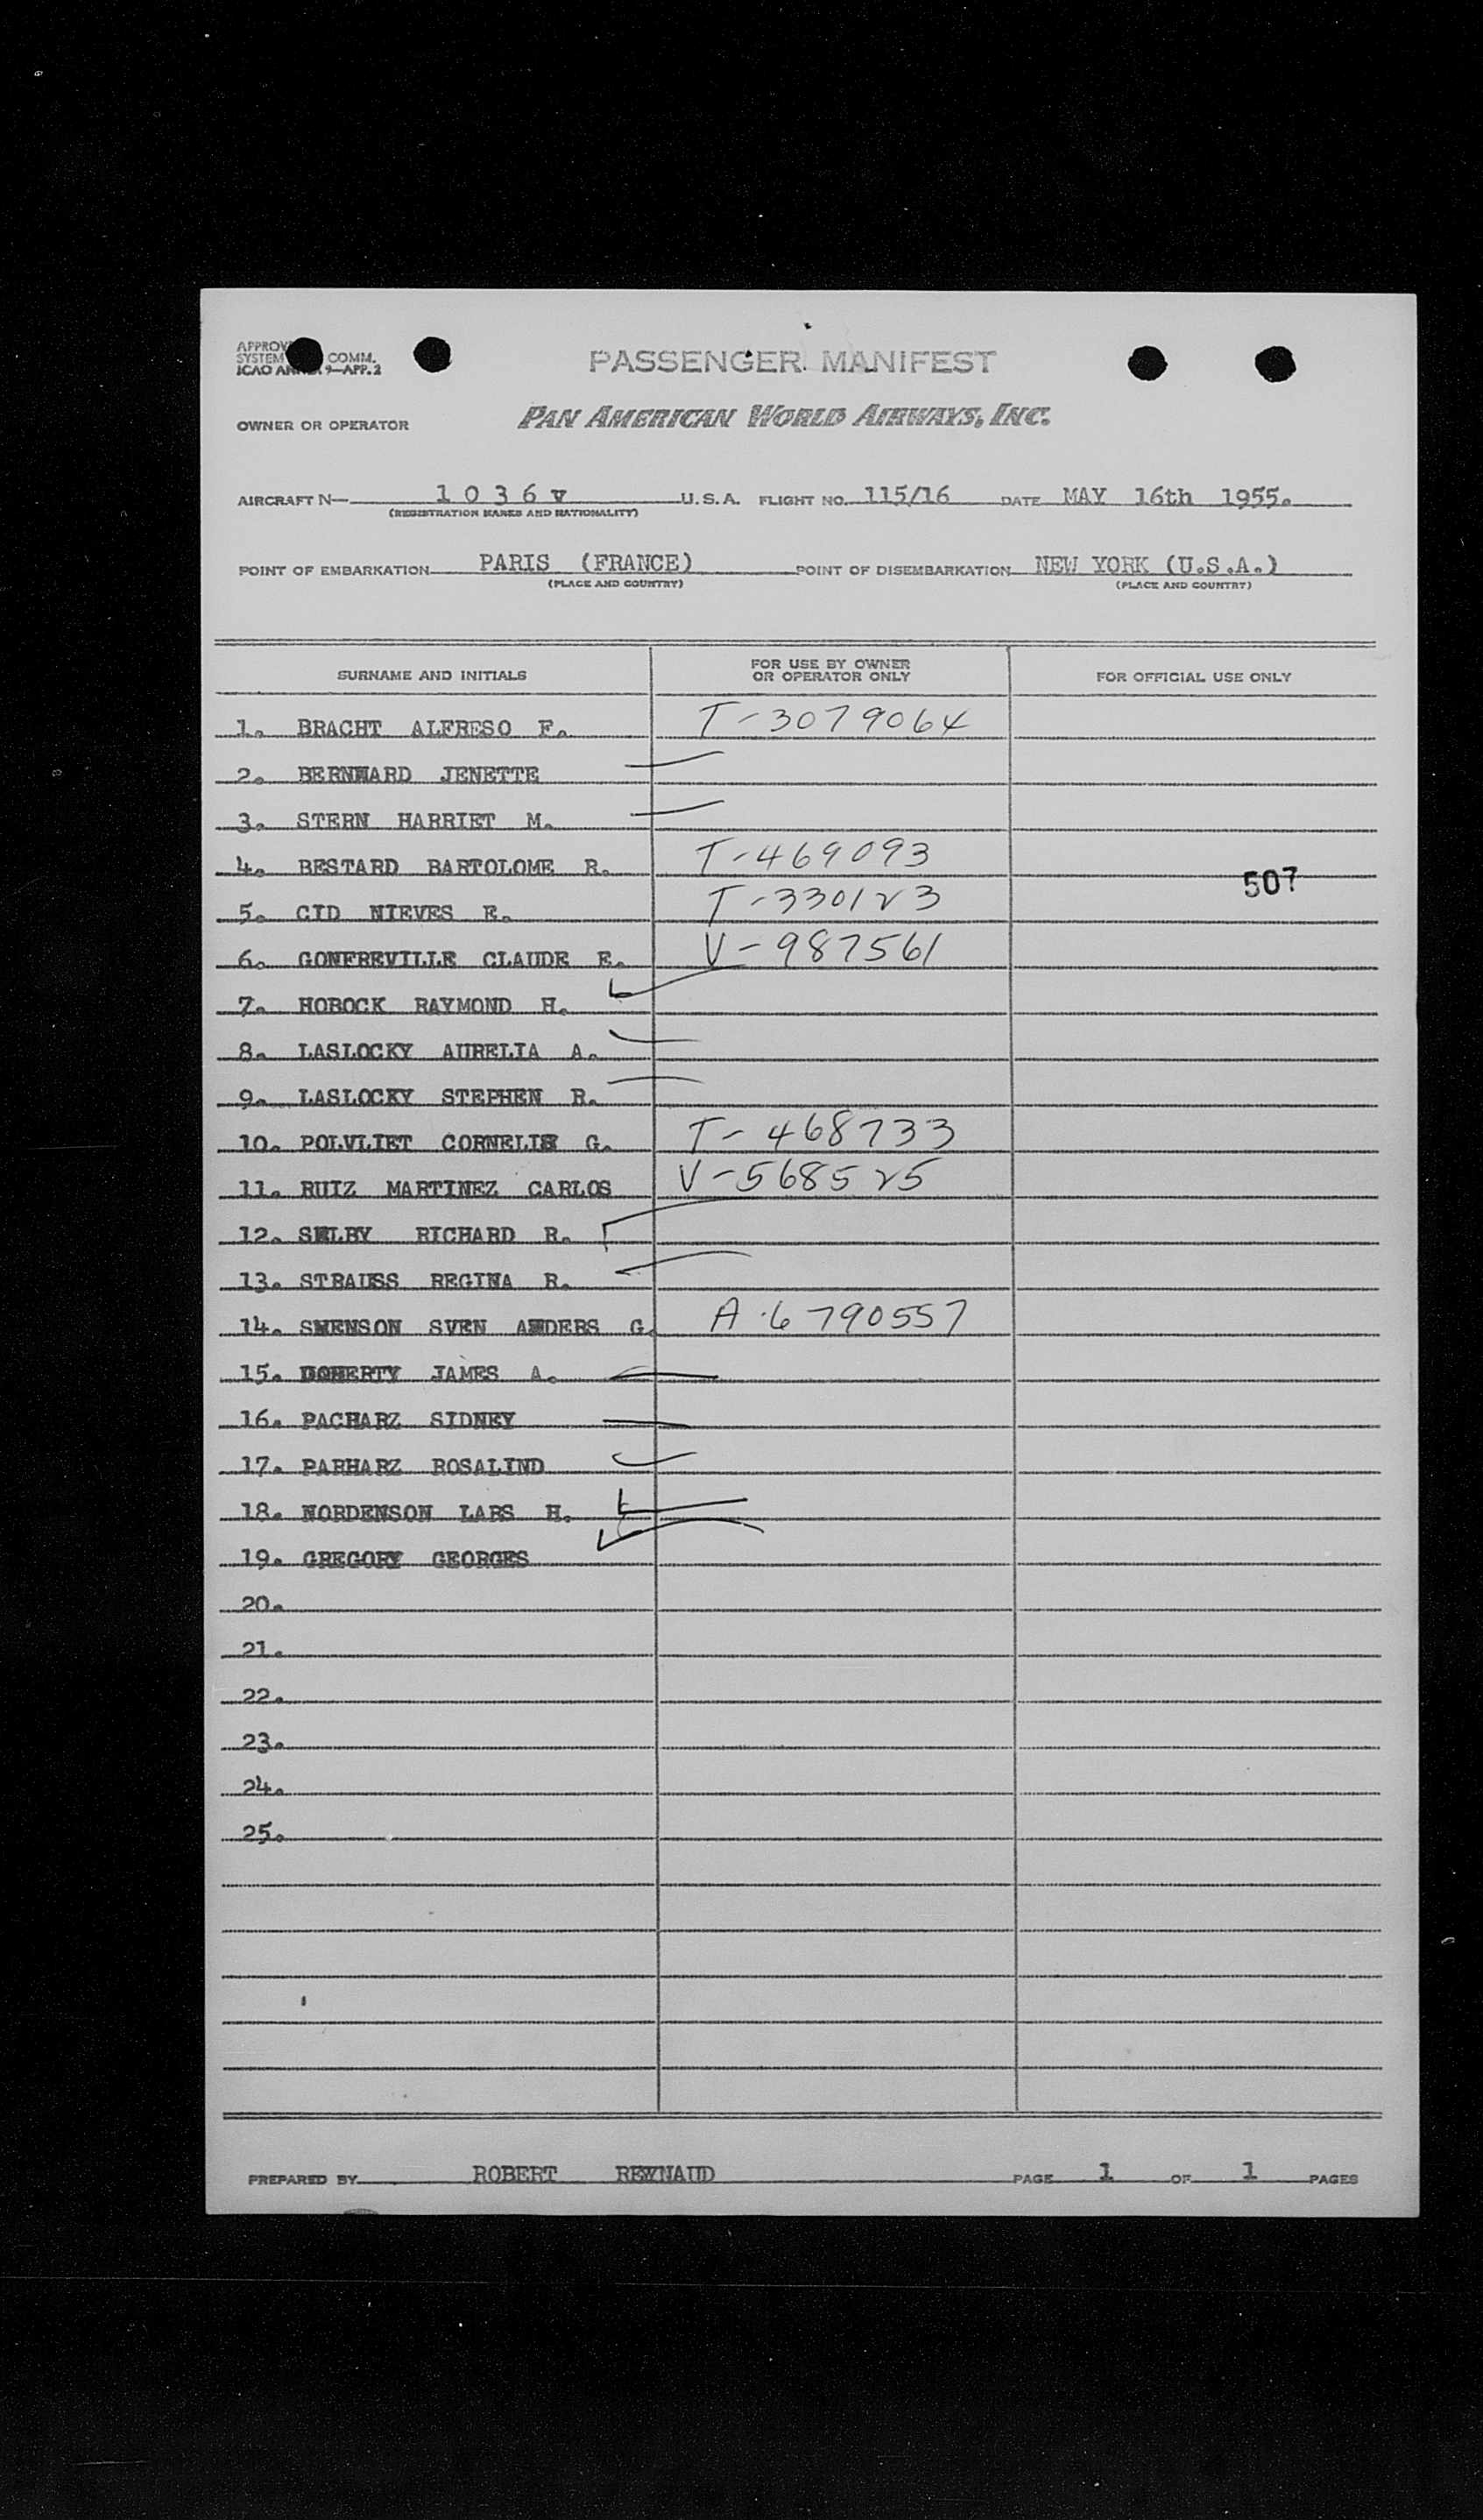 PASSENGER MANIFEST
APPROV
SYSTEM COMM.
ICAO AN 9—APP. 2
OWNER OR OPERATOR PAN AMERICAN WORLD AIRWAYS, INC.
AIRCRAFT N— 1 0 3 6 V U.S.A. FLIGHT NO. 115/16 DATE MAY 16th 1955.
(REGISTRATION MARKS AND NATIONALITY)
POINT OF EMBARKATION PARIS (FRANCE) POINT OF DISEMBARKATION NEW YORK (U.S.A.)
(PLACE AND COUNTRY) (PLACE AND COUNTRY)
SURNAME AND INITIALS FOR USE BY OWNER OR OPERATOR ONLY FOR OFFICIAL USE ONLY
1. BRACHT ALFRESO F. T-3079064
2. BERNWARD JENETTE
3. STERN HARRIET M.
4. BESTARD BARTOLOME R. T-469093
507
5. CID NIEVES E. T-330123
6. GONFREVILLE CLAUDE E. V-987561
7. HOBOCK RAYMOND H.
8. LASLOCKY AURELIA A.
9. LASLOCKY STEPHEN R.
10. POLVLIET CORNELIS G. T-468733
11. RUIZ MARTINEZ CARLOS V-568525
12. SELBY RICHARD R.
13. STRAUSS REGINA R.
14. SWENSON SVEN ANDERS G. A-6790557
15. DOHERTY JAMES A.
16. PACHARZ SIDNEY
17. PARHARZ ROSALIND
18. NORDENSON LARS H.
19. GREGORY GEORGES
20.
21.
22.
23.
24.
25.
PREPARED BY ROBERT REYNAUD PAGE 1 OF 1 PAGES